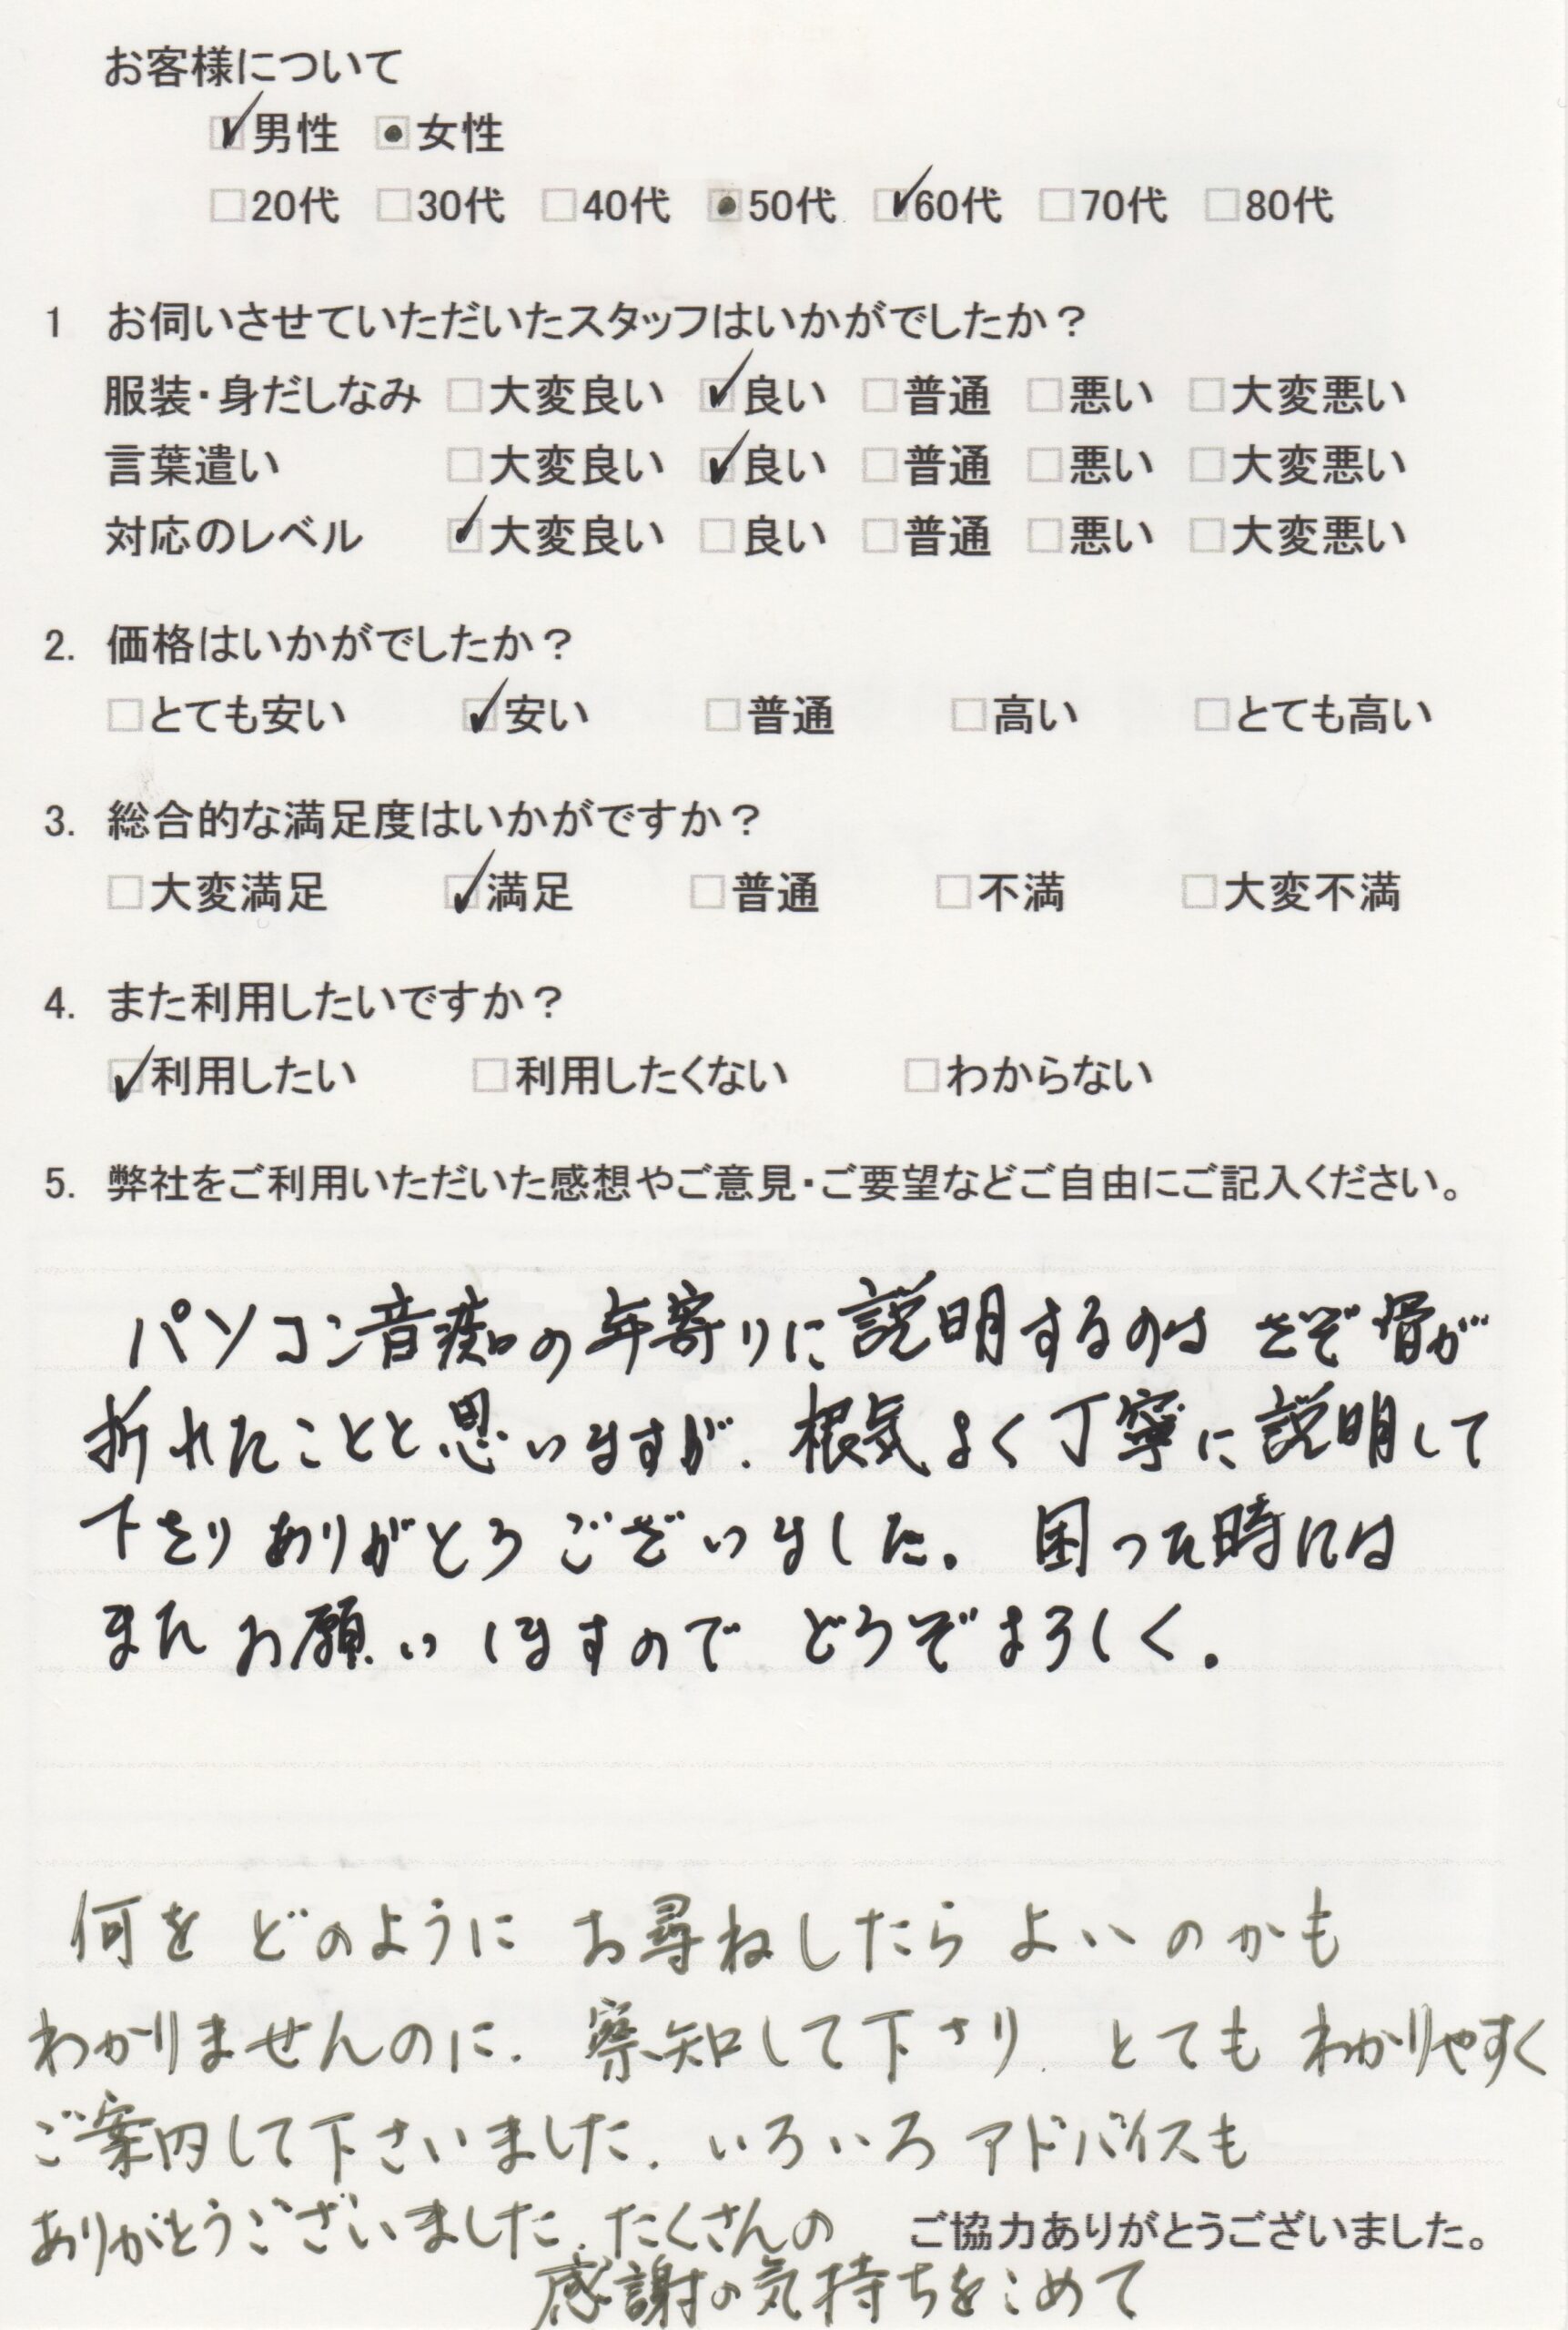 お客様について
☑男性 ☐女性
☐20代 ☐30代 ☐40代 ☐50代 ☑60代 ☐70代 ☐80代
1 お伺いさせていただいたスタッフはいかがでしたか？
服装・身だしなみ ☐大変良い ☑良い ☐普通 ☐悪い ☐大変悪い
言葉遣い ☐大変良い ☑良い ☐普通 ☐悪い ☐大変悪い
対応のレベル ☑大変良い ☐良い ☐普通 ☐悪い ☐大変悪い
2. 価格はいかがでしたか？
☐とても安い ☑安い ☐普通 ☐高い ☐とても高い
3. 総合的な満足度はいかがですか？
☐大変満足 ☑満足 ☐普通 ☐不満 ☐大変不満
4. また利用したいですか？
☑利用したい ☐利用したくない ☐わからない
5. 弊社をご利用いただいた感想やご意見・ご要望などご自由にご記入ください。
パソコン音痴の年寄りに説明するのは さぞ骨が
折れたことと思いますが、根気よく丁寧に説明して
下さり ありがとう ございました。 困った時には
また お願い しますので どうぞよろしく。
何を どのように お尋ねしたら よいのかも
わかりませんのに、 察知して下さり、 とても わかりやすく
ご案内して下さいました。 いろいろ アドバイスも
ありがとうございました。たくさんの
ご協力ありがとうございました。
感謝の気持ちをこめて